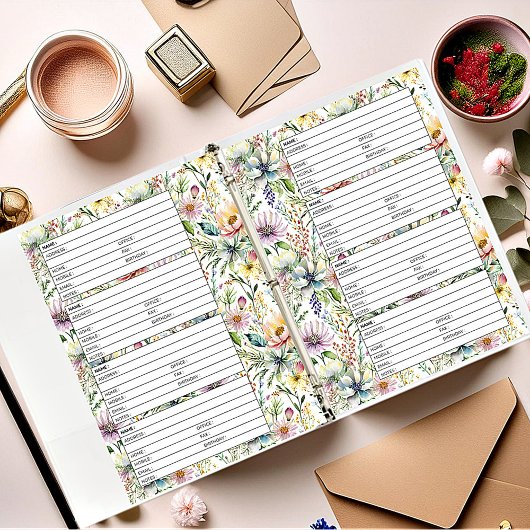 NAME:
ADDRESS:
HOME: OFFICE:
MOBILE: FAX:
EMAIL: BIRTHDAY:
NOTES:
NAME:
ADDRESS:
HOME: OFFICE:
MOBILE: FAX:
EMAIL: BIRTHDAY:
NOTES:
NAME:
ADDRESS:
HOME: OFFICE:
MOBILE: FAX:
EMAIL: BIRTHDAY:
NOTES:
NAME:
ADDRESS:
HOME: OFFICE:
MOBILE: FAX:
EMAIL: BIRTHDAY:
NOTES:
NAME:
ADDRESS:
HOME: OFFICE:
MOBILE: FAX:
EMAIL: BIRTHDAY:
NOTES:
NAME:
ADDRESS:
HOME: OFFICE:
MOBILE: FAX:
EMAIL: BIRTHDAY:
NOTES:
NAME:
ADDRESS:
HOME: OFFICE:
MOBILE: FAX:
EMAIL: BIRTHDAY:
NOTES:
NAME:
ADDRESS:
HOME: OFFICE:
MOBILE: FAX:
EMAIL: BIRTHDAY:
NOTES: